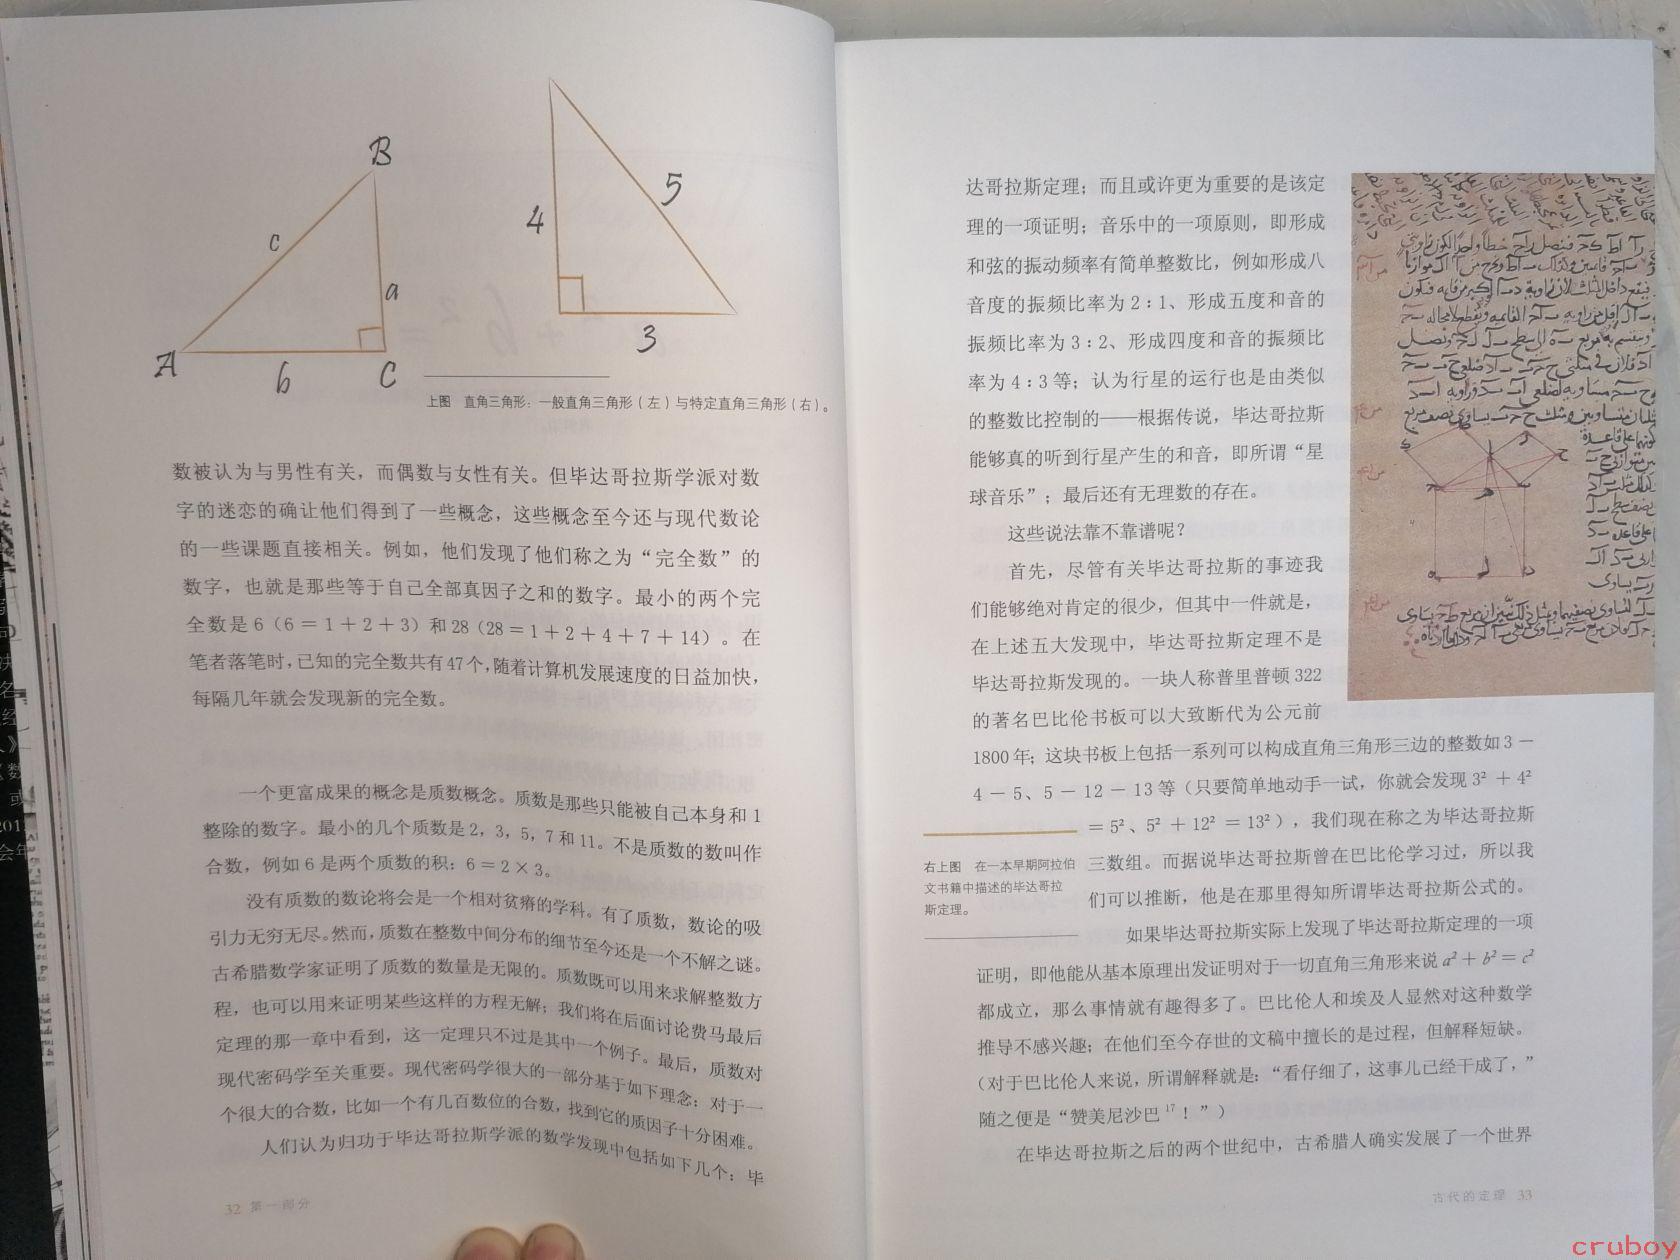 B
c
a
A
b
C
4
5
3
上图 直角三角形：一般直角三角形（左）与特定直角三角形（右）。
数被认为与男性有关，而偶数与女性有关。但毕达哥拉斯学派对数
字的迷恋的确让他们得到了一些概念，这些概念至今还与现代数论
的一些课题直接相关。例如，他们发现了他们称之为“完全数”的
数字，也就是那些等于自己全部真因子之和的数字。最小的两个完
全数是 6（6 = 1 + 2 + 3）和 28（28 = 1 + 2 + 4 + 7 + 14）。在
笔者落笔时，已知的完全数共有 47 个，随着计算机发展速度的日益加快，
每隔几年就会发现新的完全数。
一个更富成果的概念是质数概念。质数是那些只能被自己本身和 1
整除的数字。最小的几个质数是 2，3，5，7 和 11。不是质数的数叫作
合数，例如 6 是两个质数的积：6 = 2 × 3。
没有质数的数论将会是一个相对贫瘠的学科。有了质数，数论的吸
引力无穷无尽。然而，质数在整数中间分布的细节至今还是一个不解之谜。
古希腊数学家证明了质数的数量是无限的。质数既可以用来求解整数方
程，也可以用来证明某些这样的方程无解；我们将在后面讨论费马最后
定理的那一章中看到，这一定理只不过是其中一个例子。最后，质数对
现代密码学至关重要。现代密码学很大的一部分基于如下理念：对于一
个很大的合数，比如一个有几百数位的合数，找到它的质因子十分困难。
人们认为归功于毕达哥拉斯学派的数学发现中包括如下几个：毕
32 第一部分
达哥拉斯定理；而且或许更为重要的是该定
理的一项证明；音乐中的一项原则，即形成
和弦的振动频率有简单整数比，例如形成八
音度的振频比率为 2 : 1、形成五度和音的
振频比率为 3 : 2、形成四度和音的振频比
率为 4 : 3 等；认为行星的运行也是由类似
的整数比控制的——根据传说，毕达哥拉斯
能够真的听到行星产生的和音，即所谓“星
球音乐”；最后还有无理数的存在。
这些说法靠不靠谱呢？
首先，尽管有关毕达哥拉斯的事迹我
们能够绝对肯定的很少，但其中一件就是，
在上述五大发现中，毕达哥拉斯定理不是
毕达哥拉斯发现的。一块人称普里普顿 322
的著名巴比伦书板可以大致断代为公元前
1800 年；这块书板上包括一系列可以构成直角三角形三边的整数如 3 －
4 － 5、5 － 12 － 13 等（只要简单地动手一试，你就会发现 3² + 4²
= 5²、5² + 12² = 13²），我们现在称之为毕达哥拉斯
三数组。而据说毕达哥拉斯曾在巴比伦学习过，所以我
们可以推断，他是在那里得知所谓毕达哥拉斯公式的。
右上图 在一本早期阿拉伯
文书籍中描述的毕达哥拉
斯定理。
如果毕达哥拉斯实际上发现了毕达哥拉斯定理的一项
证明，即他能从基本原理出发证明对于一切直角三角形来说 a² + b² = c²
都成立，那么事情就有趣得多了。巴比伦人和埃及人显然对这种数学
推导不感兴趣；在他们至今存世的文稿中擅长的是过程，但解释短缺。
（对于巴比伦人来说，所谓解释就是：“看仔细了，这事儿已经干成了，”
随之便是“赞美尼沙巴¹⁷！”）
在毕达哥拉斯之后的两个世纪中，古希腊人确实发展了一个世界
古代的定理 33
cruboy